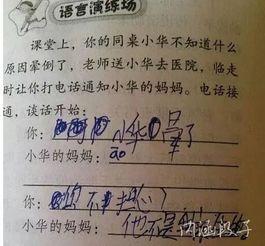 语言演练场
课堂上，你的同桌小华不知道什么
原因晕倒了，老师送小华去医院，临走
时让你打电话通知小华的妈妈。电话接
通，谈话开始：
你：小华晕了
小华的妈妈：ao
你：您不担心？
小华的妈妈：他不是我亲生的
内涵段子